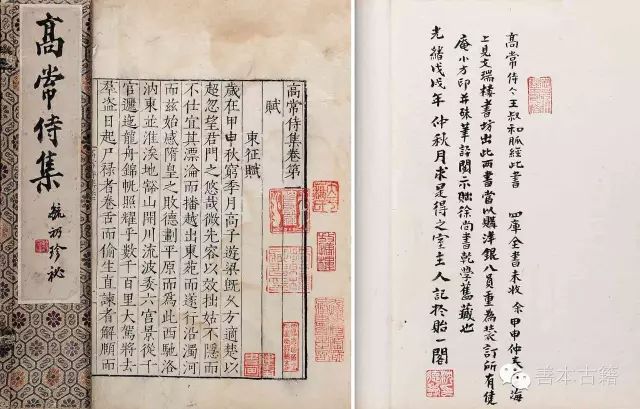 高常侍集
毓初珍祕
高常侍集卷第一
賦
東征賦
歲在甲申秋窮季月高子遊梁既久方適楚以
超忽望君門之悠哉微先容以效拙姑不隱而
不仕宜其漂淪而播越出東苑而遂行沿濁河
而兹始感隋皇之敗德劃平原而為此西馳洛
汭東並淮涘地豁山開川流波委六宮景從千
官邐迤龍舟錦帆照耀乎數千百里大駕將去
羣盜日起尸祿者卷舌而偷生直諫者解頤而
高常侍々王叔和脈經此書 四庫全書未收 余甲申仲 海
上見文瑞樓書坊出此兩書當以購洋銀八員重為裝訂所有隻
庵小方印并硃筆詳閱示 徐尚書乾學舊藏也
光緒戊戌年 仲秋月求是得之室主人記於貽一閣
善本古籍